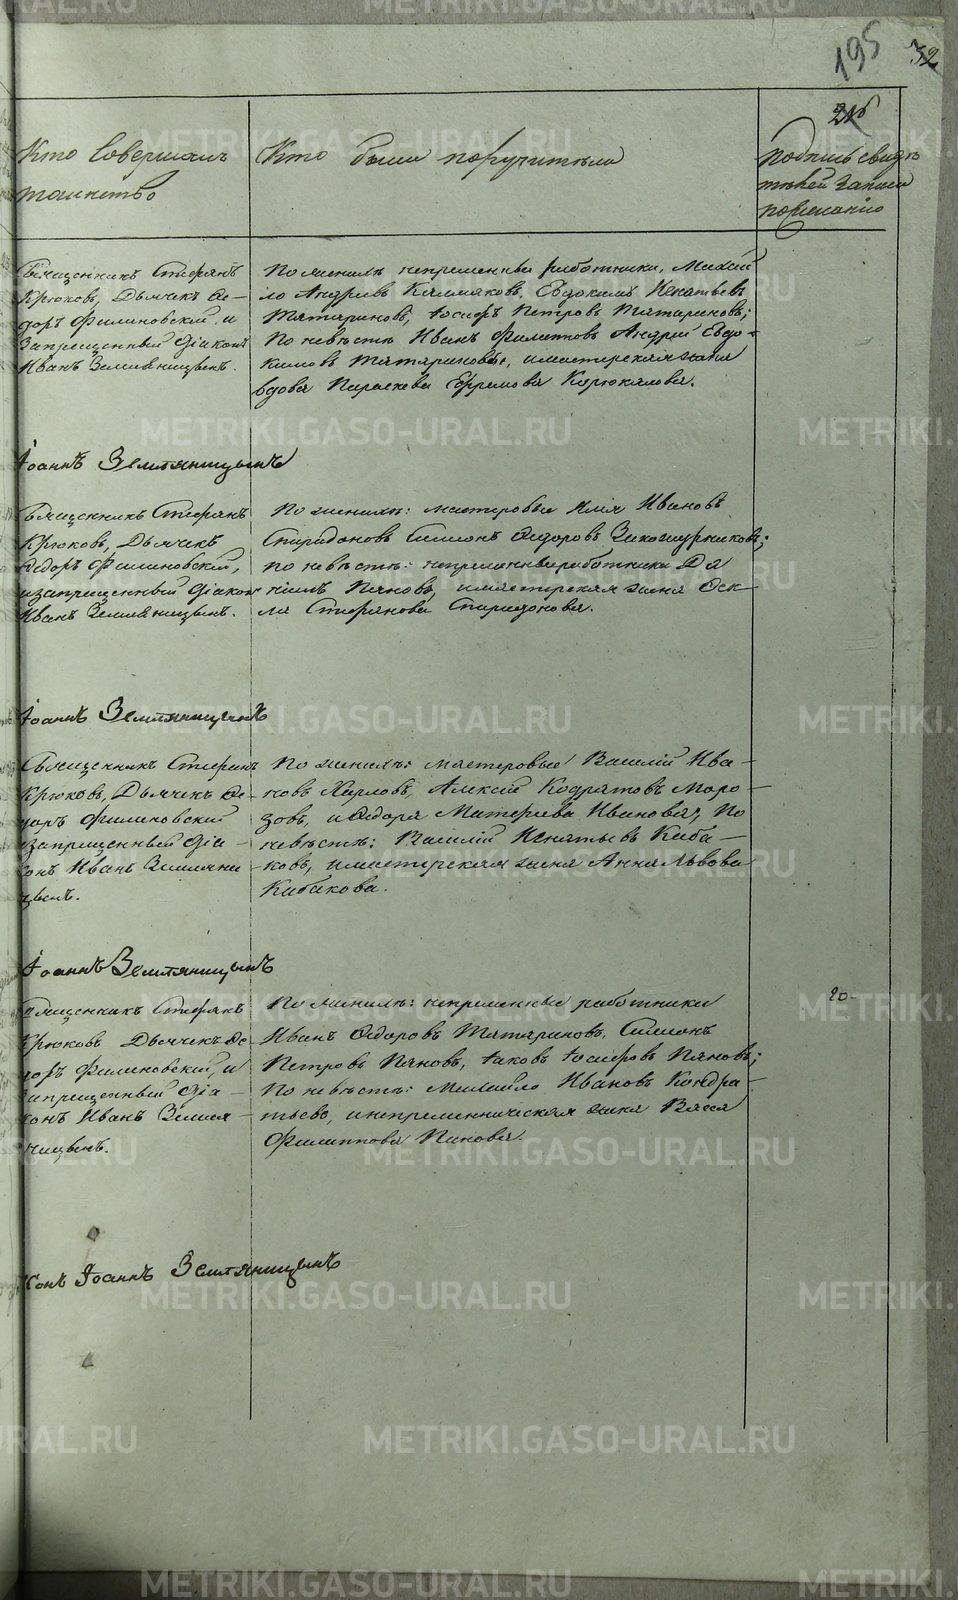 195 32
216
Кто Совершалъ
таинство
Кто были поручители
подпись свидѣ
телей записи
по желанію
Священникъ Стефанъ
Крюковъ, Дьячекъ Ѳе-
доръ Филиновскій, и
Запрещенный діаконъ
Иванъ Земляницынъ.
По женихѣ непременные работники, Михай
ло Андреевъ Калмаковъ, Евдокимъ Игнатьевъ
Татариновъ, Іосифъ Петровъ Татариновъ;
По невѣстѣ Иванъ Филиповъ Андрей Евдо-
кимовъ Татариновы, и мастерская жена
вдова Параскева Ефимова Корюкалова.
Іоаннъ Земляницынъ
Священникъ Стефанъ
Крюковъ, Дьячекъ
Ѳедоръ Филиновскій,
и запрещенный діаконъ
Иванъ Земляницынъ.
По женихѣ: мастеровые Илія Ивановъ
Спиридоновъ Симеонъ Ѳедоровъ
по невѣстѣ: непременные работники Да
ніилъ Пановъ, и мастерская жена Ѳек-
ла Стефанова Спиридонова.
Іоаннъ Земляницынъ
Священникъ Стефанъ
Крюковъ, Дьячекъ Ѳе-
доръ Филиновскій
и запрещенный діа-
конъ Иванъ Земляни
цынъ.
По женихѣ: мастеровые Василій Ива-
новъ Харловъ, Алексѣй Кодратовъ Моро-
зовъ, и Ѳедора Матфеева Иванова; По
невѣстѣ: Василій Игнатьевъ Каба-
ковъ, и мастерская жена Анна Львова
Кабакова.
Іоаннъ Земляницынъ
Священникъ Стефанъ
Крюковъ Дьячекъ Ѳе
доръ Филиновскій, и
запрещенный діа-
конъ Иванъ Земля-
ницынъ.
По женихѣ: непременные работники
Иванъ Ѳедоровъ Татариновъ, Симеонъ
Петровъ Пановъ, Іаковъ Іосифовъ Пановъ;
По невѣстѣ: Михайло Ивановъ Кондра-
тьево, и непременническая жена Васса
Филиппова Панова.
20-
конъ Іоаннъ Земляницынъ
METRIKI.GASO-URAL.RU